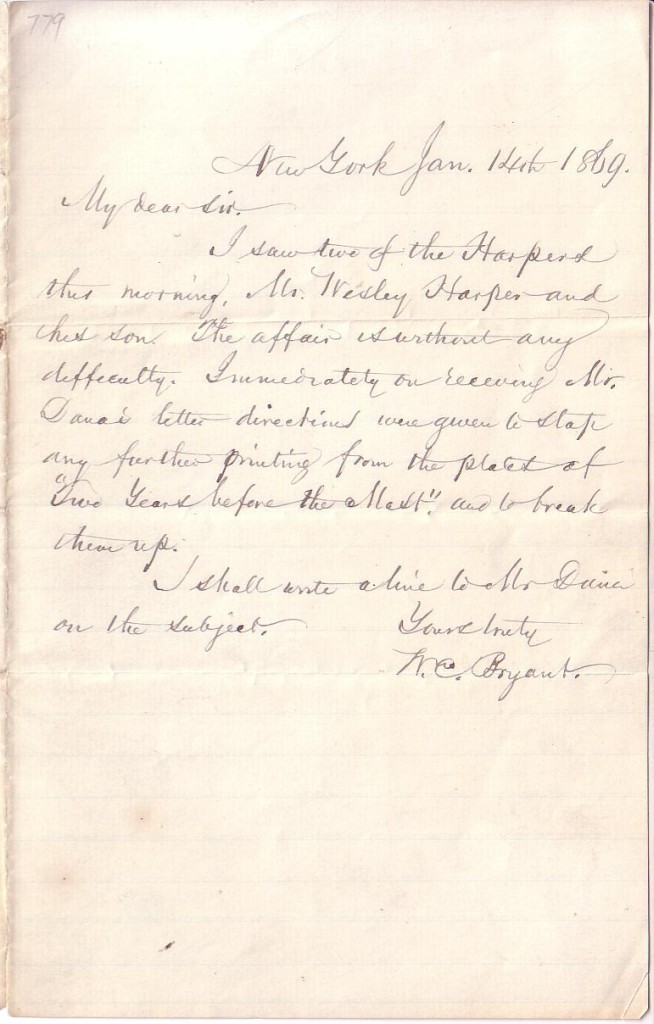 779
New York Jan. 14th 1869.
My dear sir.
I saw two of the Harpers
this morning, Mr. Wesley Harper and
his son. The affair is without any
difficulty. Immediately on receiving Mr.
Dana's letter directions were given to stop
any further printing from the plates of
"Two Years before the Mast", and to break
them up.
I shall write a line to Mr Dana
on the subject.
Yours truly
W. C. Bryant.